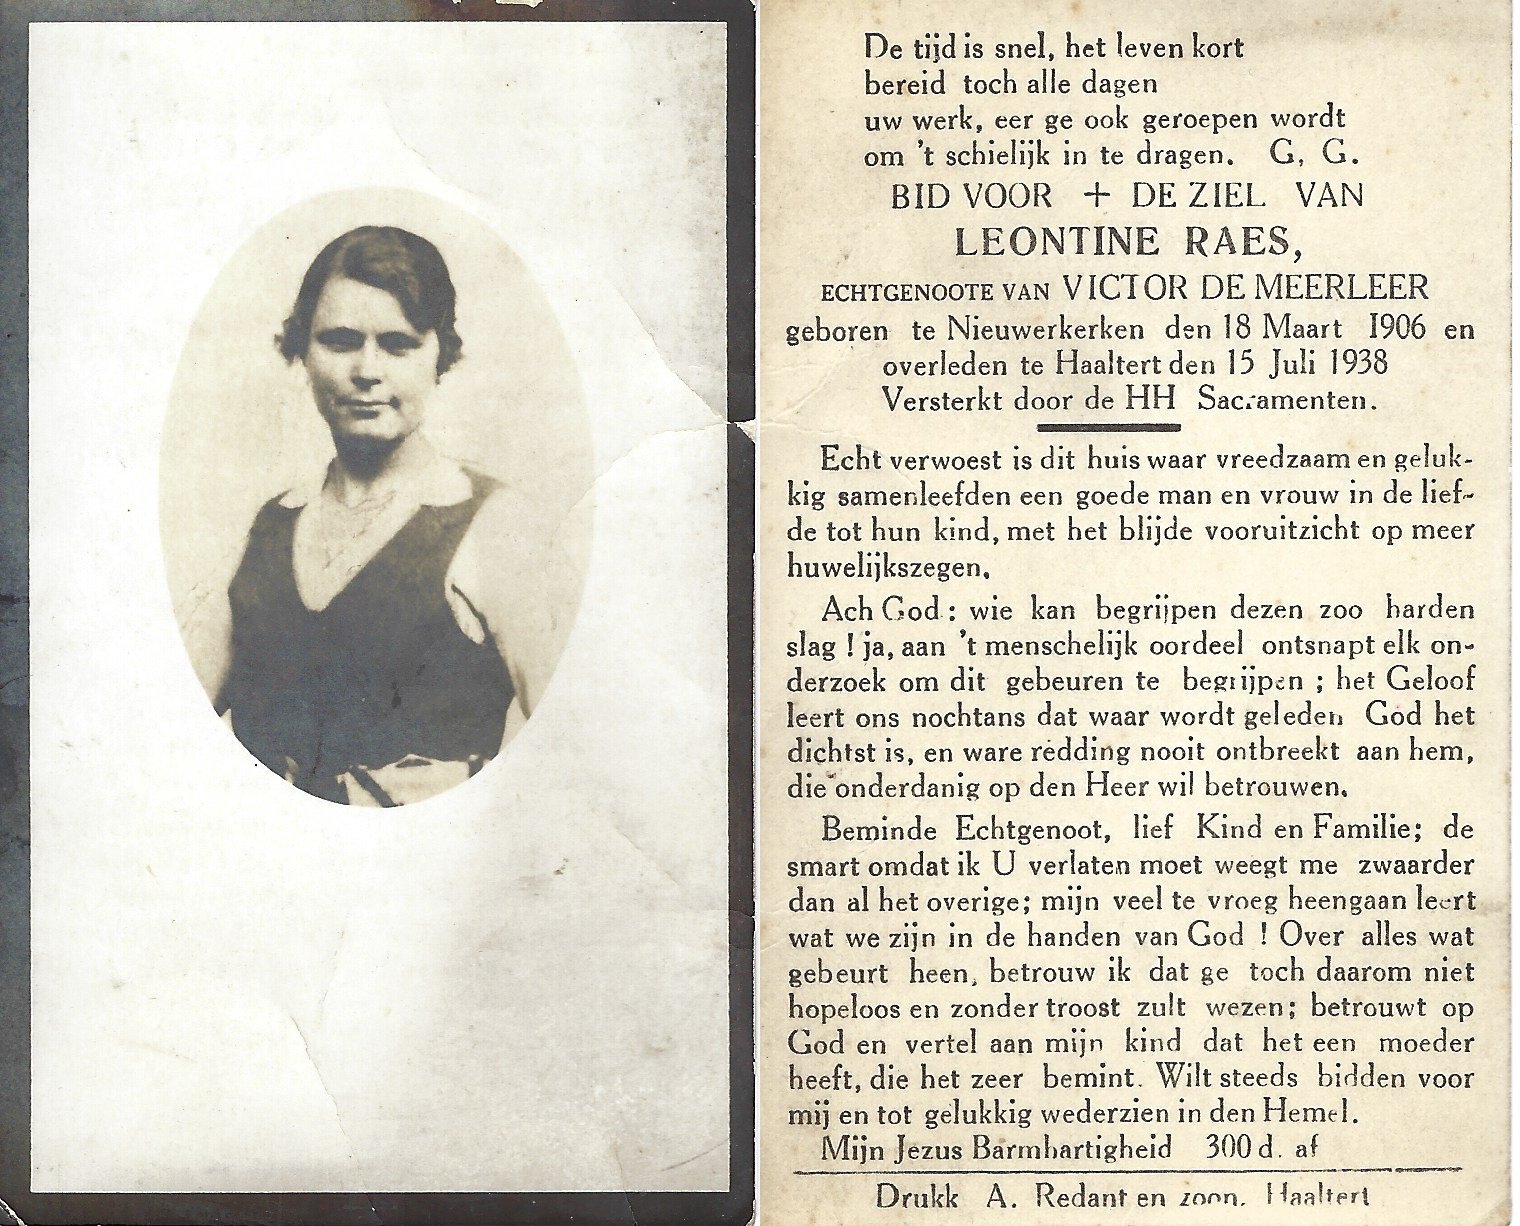 De tijd is snel, het leven kort
bereid toch alle dagen
uw werk, eer ge ook geroepen wordt
om 't schielijk in te dragen. G, G.
BID VOOR + DE ZIEL VAN
LEONTINE RAES,
ECHTGENOOTE VAN VICTOR DE MEERLEER
geboren te Nieuwerkerken den 18 Maart 1906 en
overleden te Haaltert den 15 Juli 1938
Versterkt door de HH Sacramenten.
Echt verwoest is dit huis waar vreedzaam en geluk-
kig samenleefden een goede man en vrouw in de lief-
de tot hun kind, met het blijde vooruitzicht op meer
huwelijkszegen.
Ach God : wie kan begrijpen dezen zoo harden
slag ! ja, aan 't menschelijk oordeel ontsnapt elk on-
derzoek om dit gebeuren te begrijpen ; het Geloof
leert ons nochtans dat waar wordt geleden God het
dichtst is, en ware redding nooit ontbreekt aan hem,
die onderdanig op den Heer wil betrouwen.
Beminde Echtgenoot, lief Kind en Familie; de
smart omdat ik U verlaten moet weegt me zwaarder
dan al het overige; mijn veel te vroeg heengaan leert
wat we zijn in de handen van God ! Over alles wat
gebeurt heen, betrouw ik dat ge toch daarom niet
hopeloos en zonder troost zult wezen; betrouwt op
God en vertel aan mijn kind dat het een moeder
heeft, die het zeer bemint. Wilt steeds bidden voor
mij en tot gelukkig wederzien in den Hemel.
Mijn Jezus Barmhartigheid 300 d. af
Drukk A. Redant en zoon. Haaltert